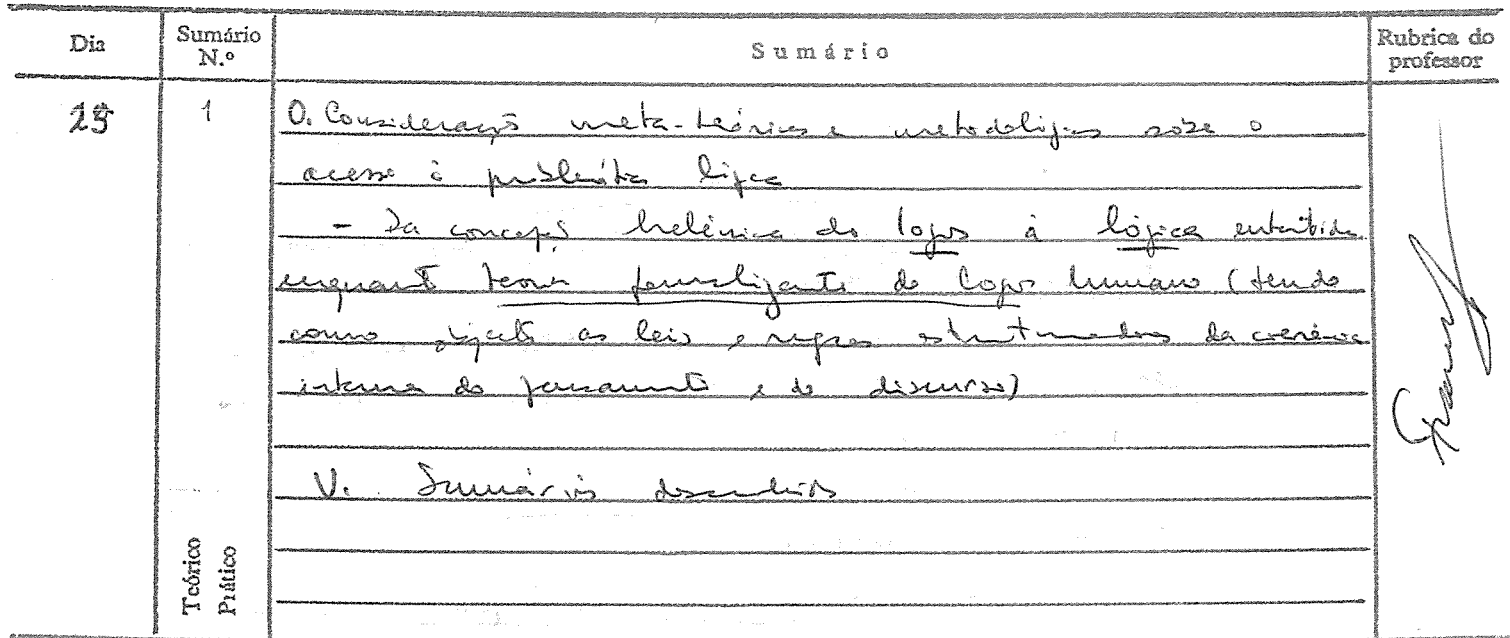 Dia
Sumário N.º
Sumário
Rubrica do professor
25
1
0. Considerações meta-teóricas e metodológicas sobre o
acesso à problemática lógica
- Da concepção helénica do logos à lógica entendida
enquanto teoria formalizante do logos humano (tendo
como objecto as leis e regras estruturadoras da coerência
interna do pensamento e do discurso)
V. Sumários
Teórico
Prático